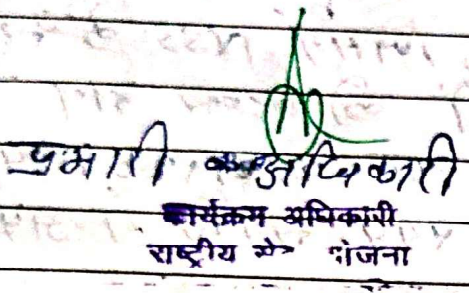 प्रभारी अधिकारी
कार्यक्रम अधिकारी
राष्ट्रीय योजना